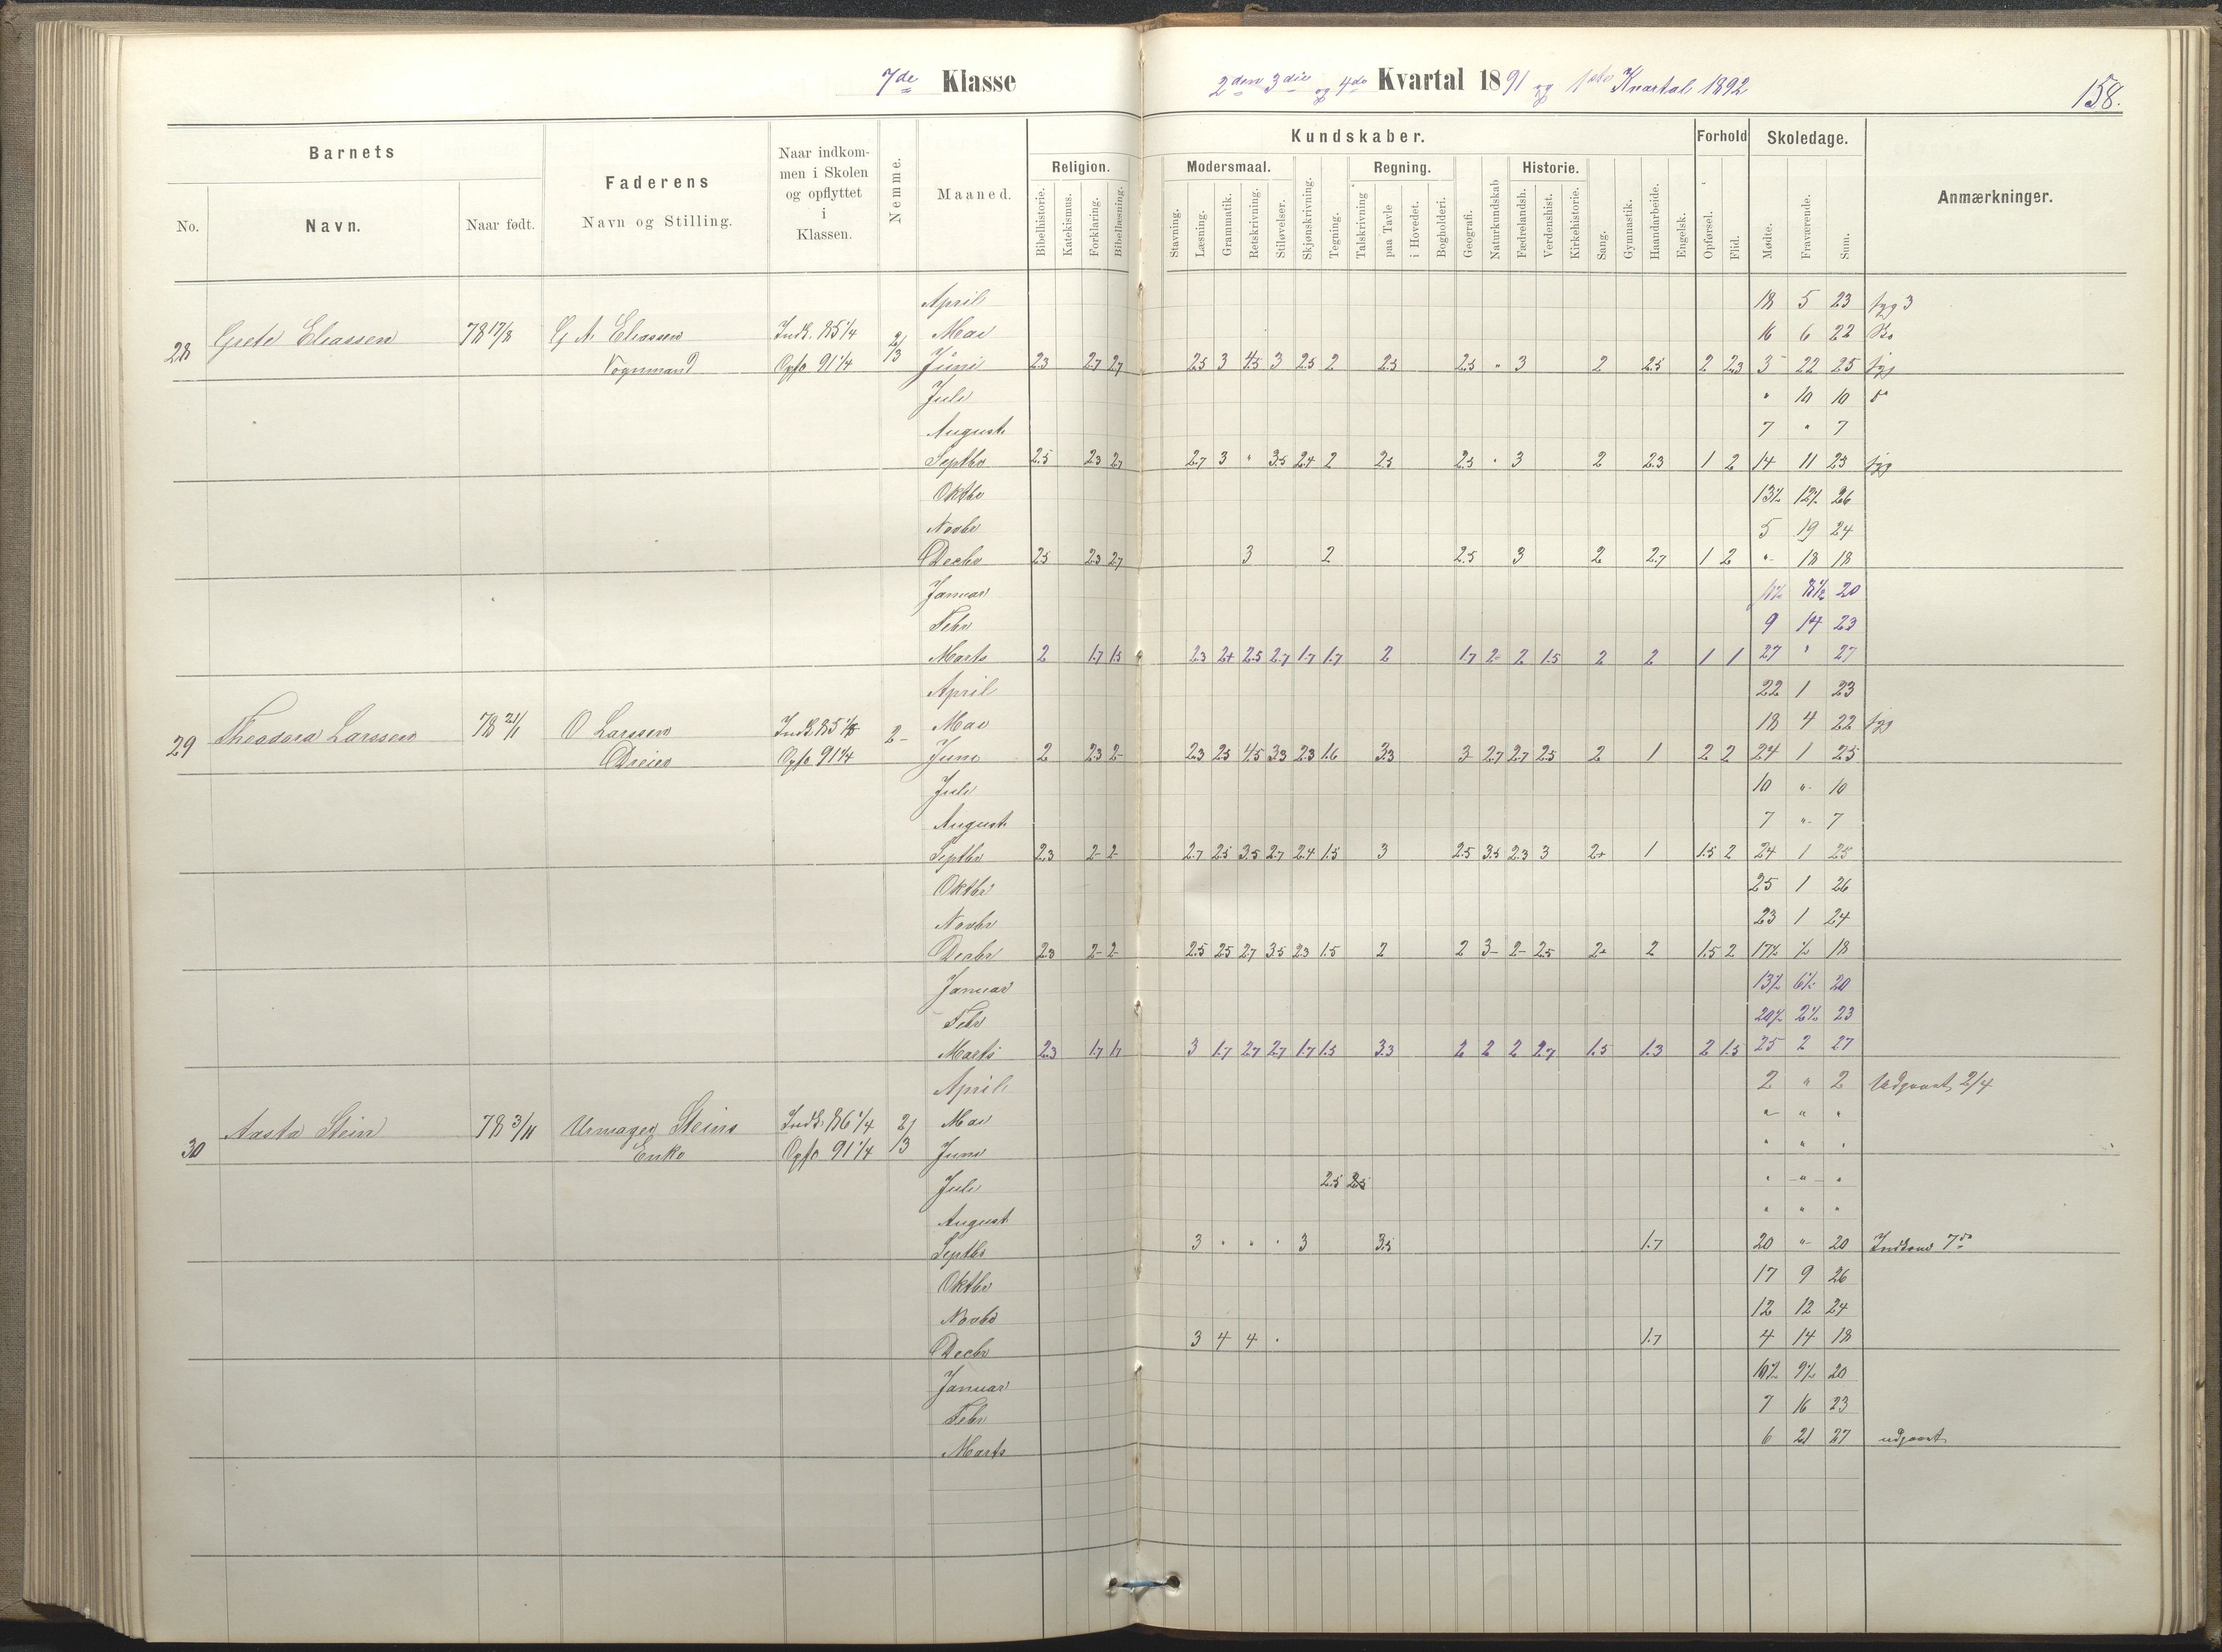 7de Klasse
2den 3die og 4de Kvartal 1891 og 1ste Kvartal 1892
158.
Barnets
No.
Navn.
Naar født.
Faderens
Navn og Stilling.
Naar indkom-
men i Skolen
og opflyttet
i
Klassen.
Nemme.
Maaned.
Kundskaber.
Religion.
Bibelhistorie.
Katekismus.
Forklaring.
Bibellæsning.
Modersmaal.
Stavning.
Læsning.
Grammatik.
Retskrivning.
Stiløvelser.
Skjønskrivning.
Tegning.
Regning.
Talskrivning
paa Tavle
i Hovedet.
Bogholderi.
Geografi.
Naturkundskab
Historie.
Fædrelandsh.
Verdenshist.
Kirkehistorie.
Sang.
Gymnastik.
Haandarbeide.
Engelsk.
Forhold
Opførsel.
Flid.
Skoledage.
Mødte.
Fraværende.
Sum.
Anmærkninger.
April 18 5 23 syg 3
28 Grete Eliassen 78 17/8 G A Eliassen Indk. 85 1/4 2/3 Mai 16 6 22
Vognmand Opfl 91 1/4 Juni 2.3 2.7 2.7 2.5 3 4.5 3 2.5 2 2.5 2.5 " 3 2 2.5 2 2.3 3 22 25 syg
Juli " 10 10
August 7 " 7
Septbr 2.5 2.3 2.7 2.7 3 " 3.5 2.4 2 2.5 2.5 " 3 2 2.3 1 2 14 11 25 syg
Oktbr 13½ 12½ 26
Novbr 5 19 24
Decbr 2.5 2.3 2.7 3 2 2.5 3 2 2.7 1 2 " 18 18
Januar 11½ 8½ 20
Febr 9 14 23
Marts 2 1.7 1.5 2.3 2+ 2.5 2.7 1.7 1.7 2 1.7 2- 2 1.5 2 2 1 1 27 " 27
April 22 1 23
29 Theodora Larssen 78 21/11 O Larssen Indk 85 1/8 2- Mai 18 4 22 syg
Dreier Opfl 91 1/4 Juni 2 2.3 2- 2.3 2.5 4.5 3.3 2.3 1.6 3.3 3 2.7 2.7 2.5 2 1 2 2 24 1 25
Juli 10 " 10
August 7 " 7
Septbr 2.3 2- 2- 2.7 2.5 3.5 2.7 2.4 1.5 3 2.5 3.5 2.3 3 2+ 1 1.5 2 24 1 25
Oktbr 25 1 26
Novbr 23 1 24
Decbr 2.3 2- 2- 2.5 2.5 2.7 3.5 2.3 1.5 2 2 3- 2- 2.5 2+ 2 1.5 2 17½ ½ 18
Januar 13½ 6½ 20
Febr 20½ 2½ 23
Marts 2.3 1.7 1.7 3 1.7 2.7 2.7 1.7 1.5 3.3 2 2 2 2.7 1.5 1.3 2 1.5 25 2 27
April 2 " 2 Udgaaet 2/4
30 Aasta Stein 78 3/11 Urmager Steins Indk. 86 1/4 2/3 Mai " " "
Enke Opfl 91 1/4 Juni " " "
Juli 2.5 2.5 " " "
August " " "
Septbr 3 " " " 3 3.5 1.7 20 " 20
Oktbr 17 9 26
Novbr 12 12 24
Decbr 3 4 4 " 1.7 4 14 18
Januar 10½ 9½ 20
Febr 7 16 23
Marts 6 21 27 udgaaet